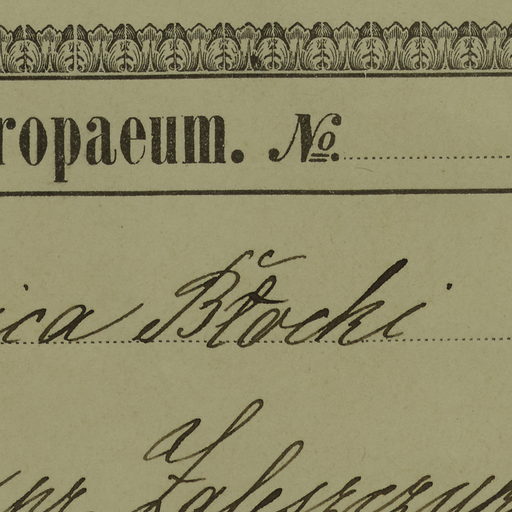 ropaeum. №
ica Błocki
pr. Zaleszczyk